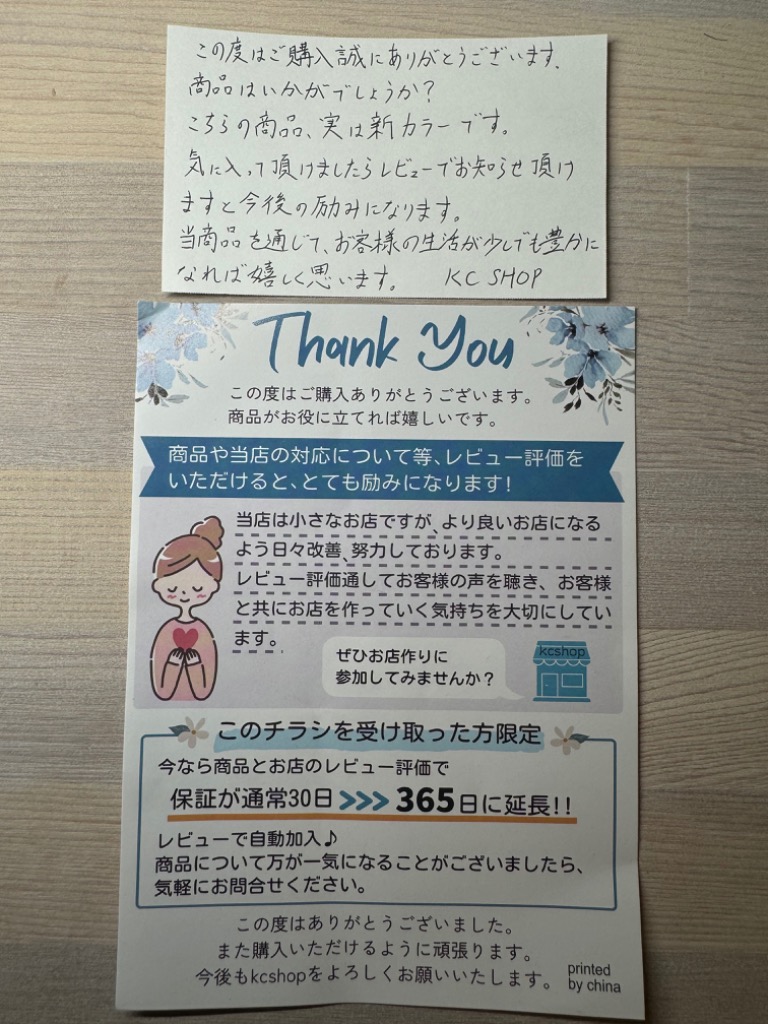 この度はご購入誠にありがとうございます。
商品はいかがでしょうか?
こちらの商品、実は新カラーです。
気に入って頂けましたらレビューでお知らせ頂け
ますと今後の励みになります。
当商品を通じて、お客様の生活が少しでも豊かに
なれば嬉しく思います。 KC SHOP
Thank You
この度はご購入ありがとうございます。
商品がお役に立てれば嬉しいです。
商品や当店の対応について等、レビュー評価を
いただけると、とても励みになります!
当店は小さなお店ですが、より良いお店になる
よう日々改善、努力しております。
レビュー評価通してお客様の声を聴き、お客様
と共にお店を作っていく気持ちを大切にしてい
ます。
ぜひお店作りに
参加してみませんか?
kcshop
このチラシを受け取った方限定
今なら商品とお店のレビュー評価で
保証が通常30日>>>365日に延長!!
レビューで自動加入♪
商品について万が一気になることがございましたら、
気軽にお問合せください。
この度はありがとうございました。
また購入いただけるように頑張ります。
今後もkcshopをよろしくお願いいたします。
printed
by china